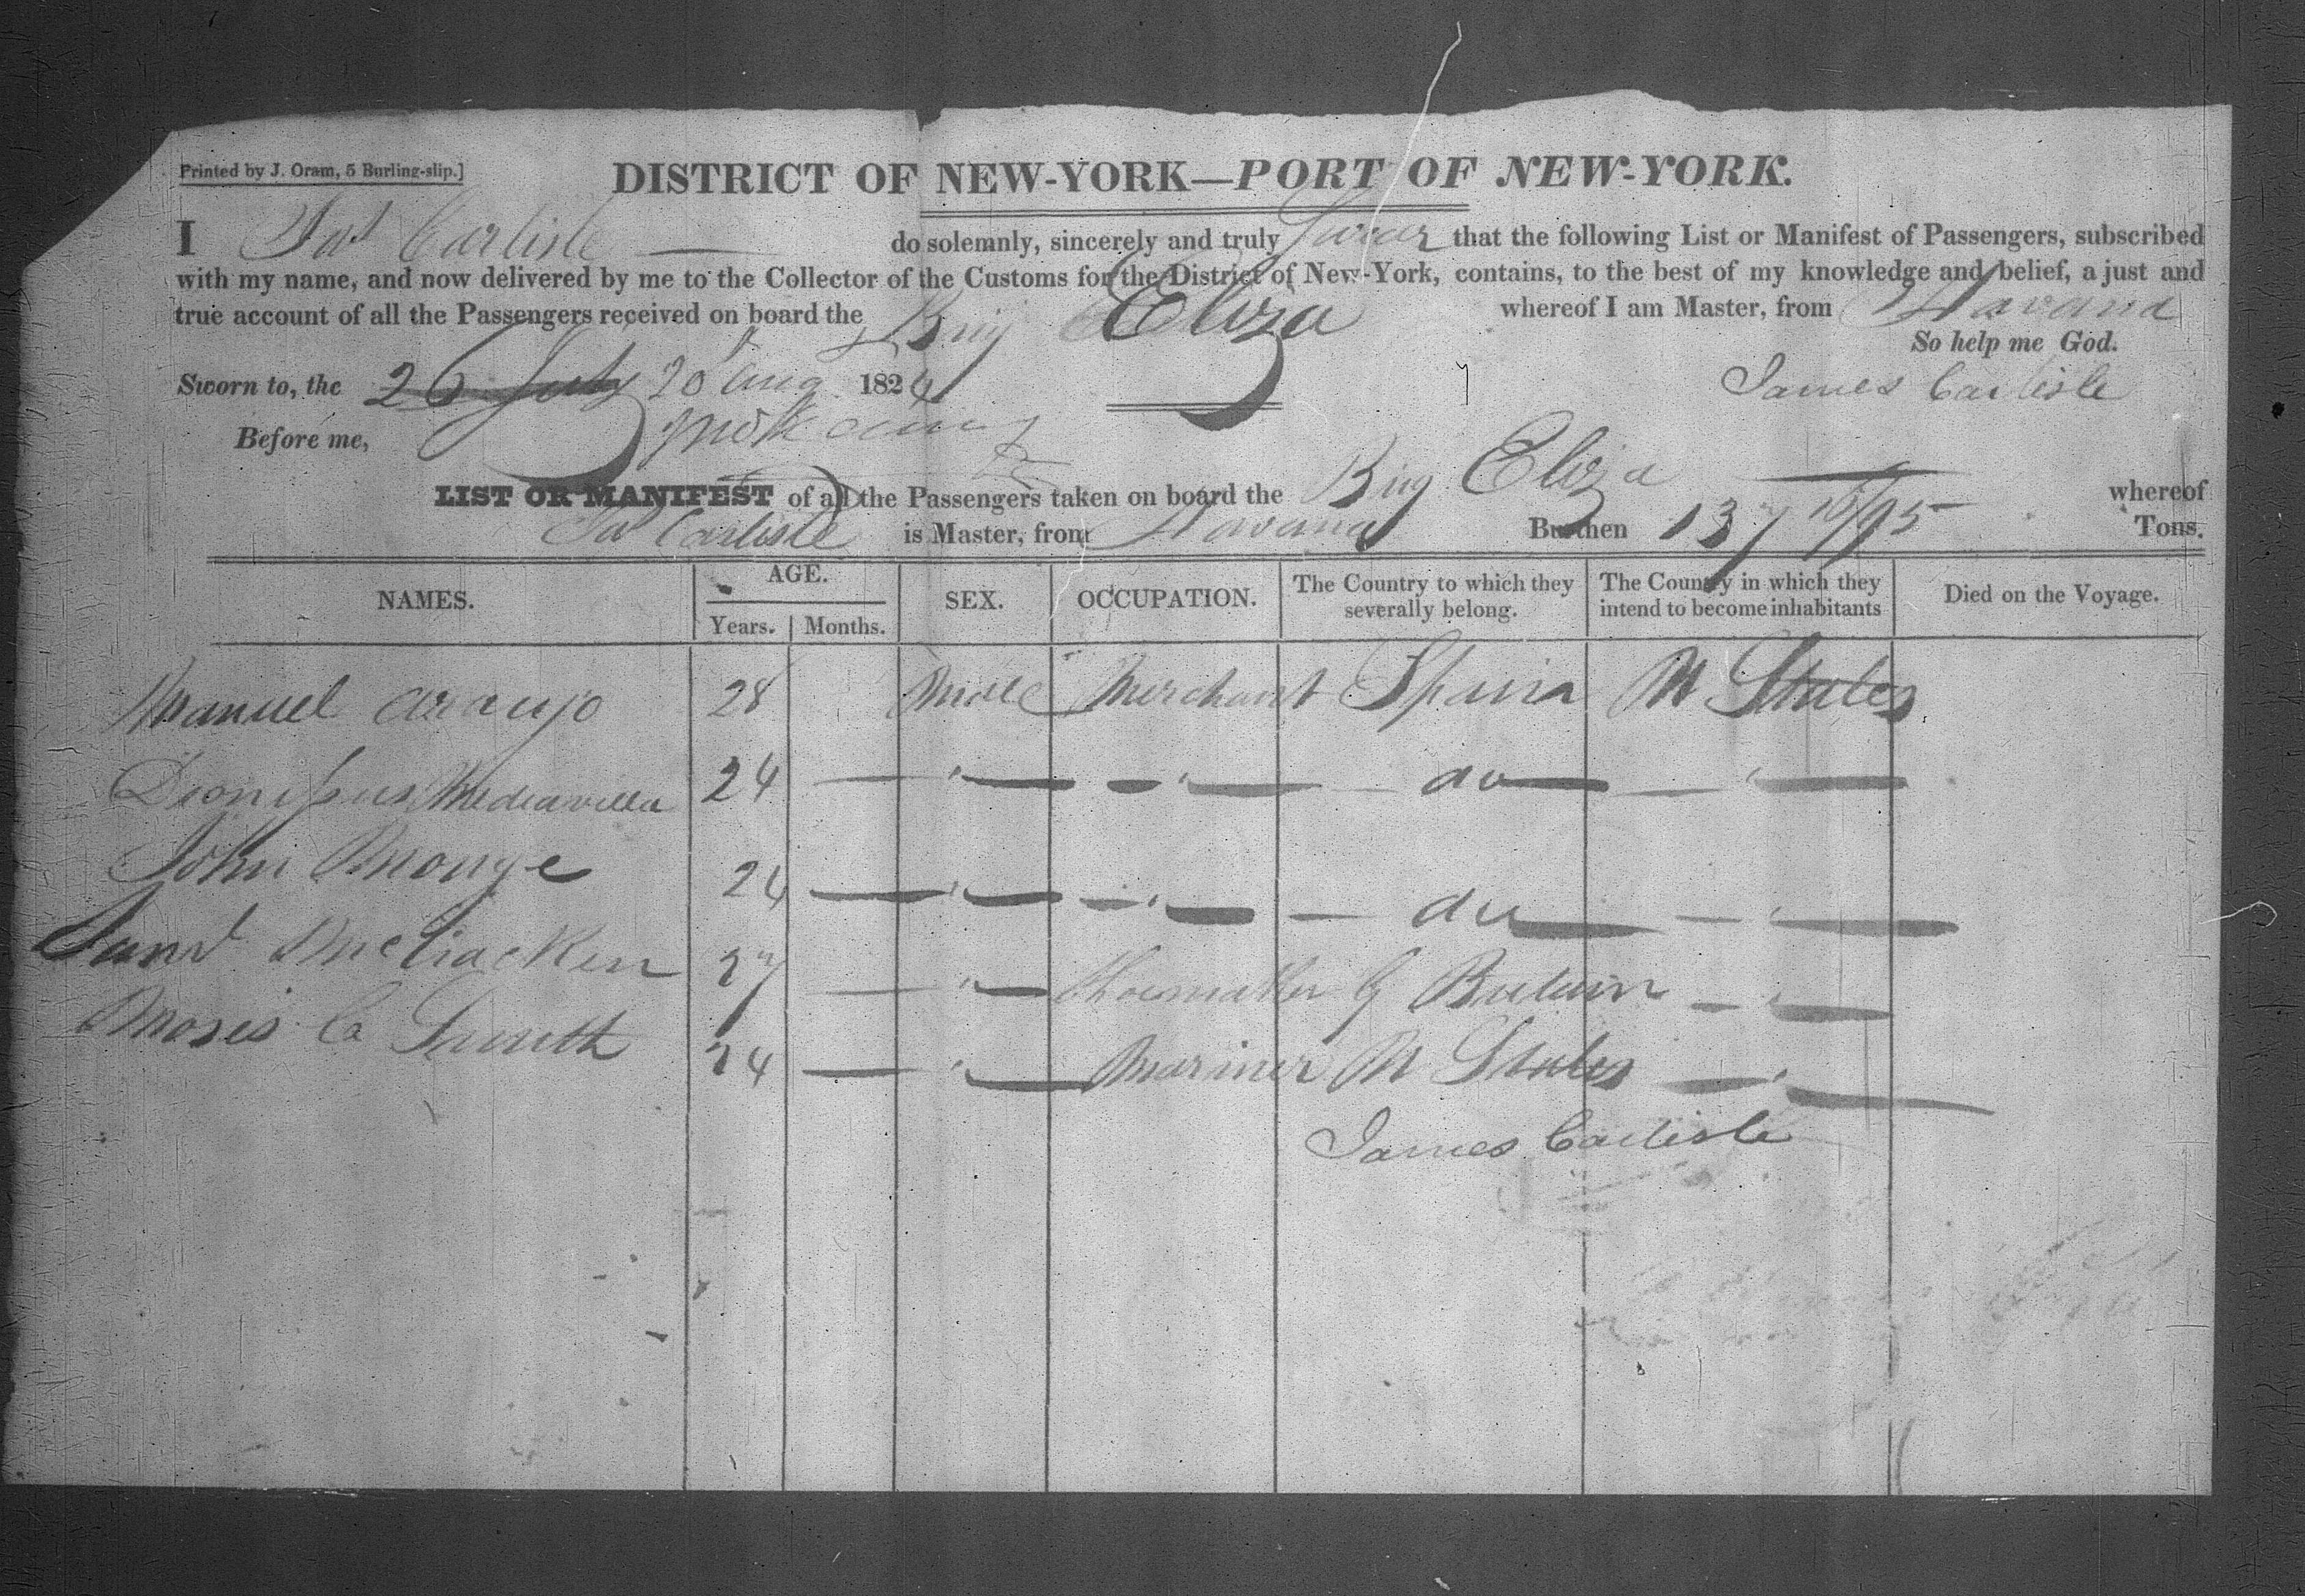 Printed by J. Oram, 5 Burling-slip.]
DISTRICT OF NEW-YORK—PORT OF NEW-YORK.
I Jas Carlisle do solemnly, sincerely and truly Swear that the following List or Manifest of Passengers, subscribed
with my name, and now delivered by me to the Collector of the Customs for the District of New-York, contains, to the best of my knowledge and belief, a just and
true account of all the Passengers received on board the Brig Eliza whereof I am Master, from Havana
So help me God.
Sworn to, the 26 July 20 Aug 1824 James Carlisle
Before me,
LIST OR MANIFEST of all the Passengers taken on board the Brig Eliza whereof
Jas Carlisle is Master, from Havana Burthen 137 16/95 Tons.
NAMES. AGE. Years. Months. SEX. OCCUPATION. The Country to which they severally belong. The Country in which they intend to become inhabitants Died on the Voyage.
Manuel Araujo 28 Male Merchant Spain U States
Dionisius Mediavilla 24 — " — — " — — do — — " —
John Monge 24 — " — — " — — do — — " —
Saml McCracken 27 — " — Shoemaker G Britain — " —
Moses C Smith 24 — " — Mariner U States — " —
James Carlisle